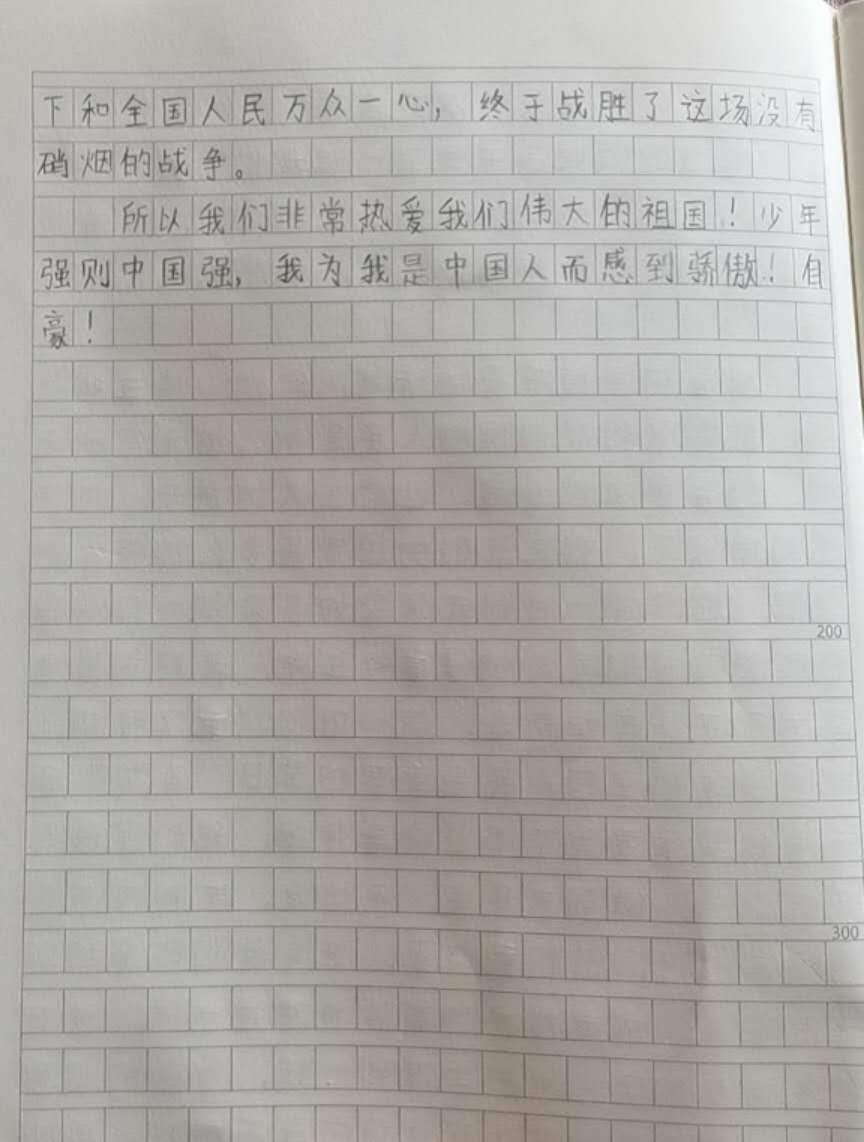 下和全国人民万众一心，终于战胜了这场没有
硝烟的战争。
所以我们非常热爱我们伟大的祖国！少年
强则中国强，我为我是中国人而感到骄傲！自
豪！
200
300